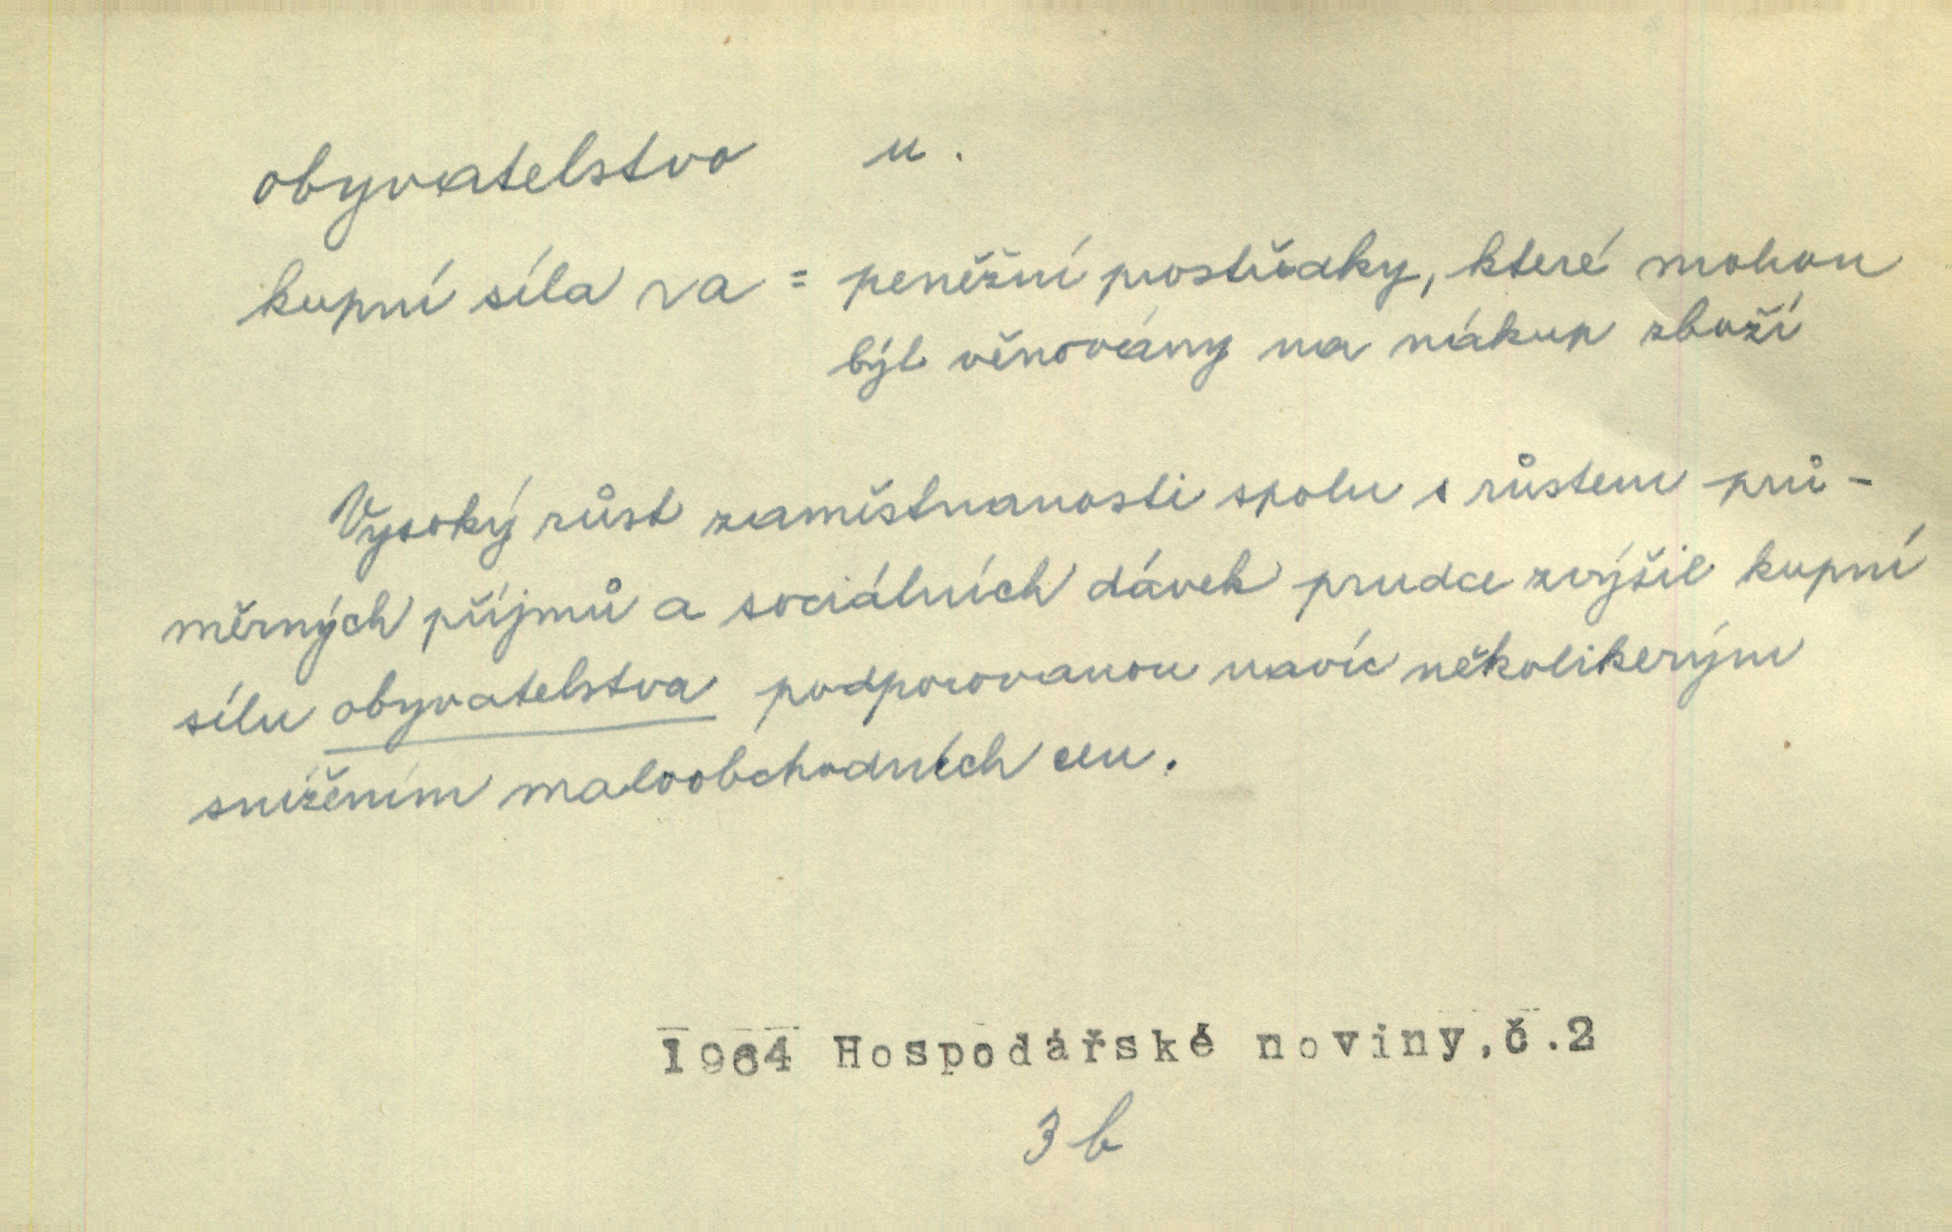 obyvatelstvo n.
kupní síla ~va = peněžní prostředky, které mohou
být věnovány na nákup zboží
Vysoký růst zaměstnanosti spolu s růstem prů-
měrných příjmů a sociálních dávek prudce zvýšil kupní
sílu obyvatelstva podporovanou navíc několikerým
snížením maloobchodních cen.
1964 Hospodářské noviny,č.2
3 b